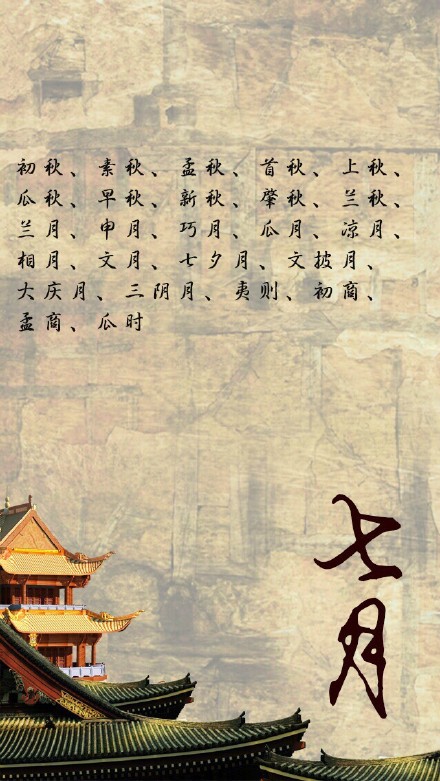 初秋、素秋、孟秋、首秋、上秋、
瓜秋、早秋、新秋、肇秋、兰秋、
兰月、申月、巧月、瓜月、凉月、
相月、文月、七夕月、文披月、
大庆月、三阴月、夷则、初商、
孟商、瓜时
七月